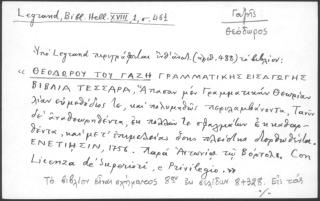 Legrand, Bibl. Hell. XVIII, 1, σ. 461
Γαζῆς
Θεόδωρος
Ὑπὸ Legrand περιγράφεται ὑπ' ἀριθ. (ἀριθ. 488) τὸ βιβλίον:
« ΘΕΟΔΩΡΟΥ ΤΟΥ ΓΑΖΗ ΓΡΑΜΜΑΤΙΚΗΣ ΕΙΣΑΓΩΓΗΣ
ΒΙΒΛΙΑ ΤΕΣΣΑΡΑ, Ἅπασαν μὲν Γραμματικὴν Θεωρίαν
λίαν εὐμεθόδως τε, καὶ πολυμαθῶς περιλαμβάνοντα, Τανῦν
δὲ ἀναθεωρηθέντα, ἐκ πολλῶν τε σφαλμάτων ἐκκαθαρ-
θέντα, καὶ μετ' ἐπιμελείας ὅσης πλείστης διορθωθέντα.
ΕΝΕΤΙΗΣΙΝ, 1756. Παρὰ Ἀντωνίῳ τῷ Βόρτολι. Con
Licenza de' Superiori, e Privilegio. »
Τὸ βιβλίον εἶναι σχήματος 8ου ἐκ σελίδων 8+328. Εἰς τὰς